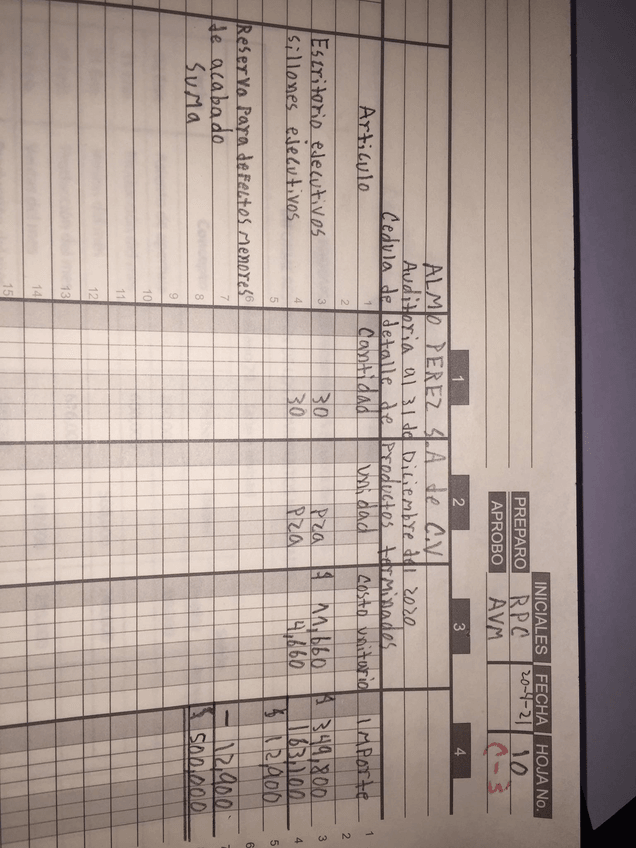 INICIALES FECHA HOJA No.
PREPARO RPC 20-4-21 10
APROBO AVM C-3
ALMO PEREZ S.A de C.V
Auditoria al 31 de Diciembre del 2020
Cedula de detalle de Productos terminados
1 2 3 4
Articulo Cantidad Unidad Costo unitario IMPorte
Escritorio ejecutivos 30 Pza $ 11,660 $ 349,800
sillones ejecutivos 30 Pza 4,660 163,100
$ 12,900
Reserva Para defectos Menores
de acabado - 12,900
SuMa $ 500,000